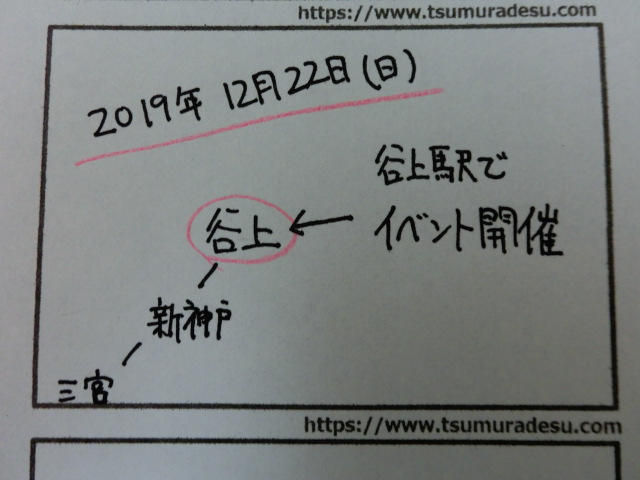 https://www.tsumuradesu.com
2019年 12月22日(日)
谷上駅で
イベント開催
谷上
新神戸
三宮
https://www.tsumuradesu.com